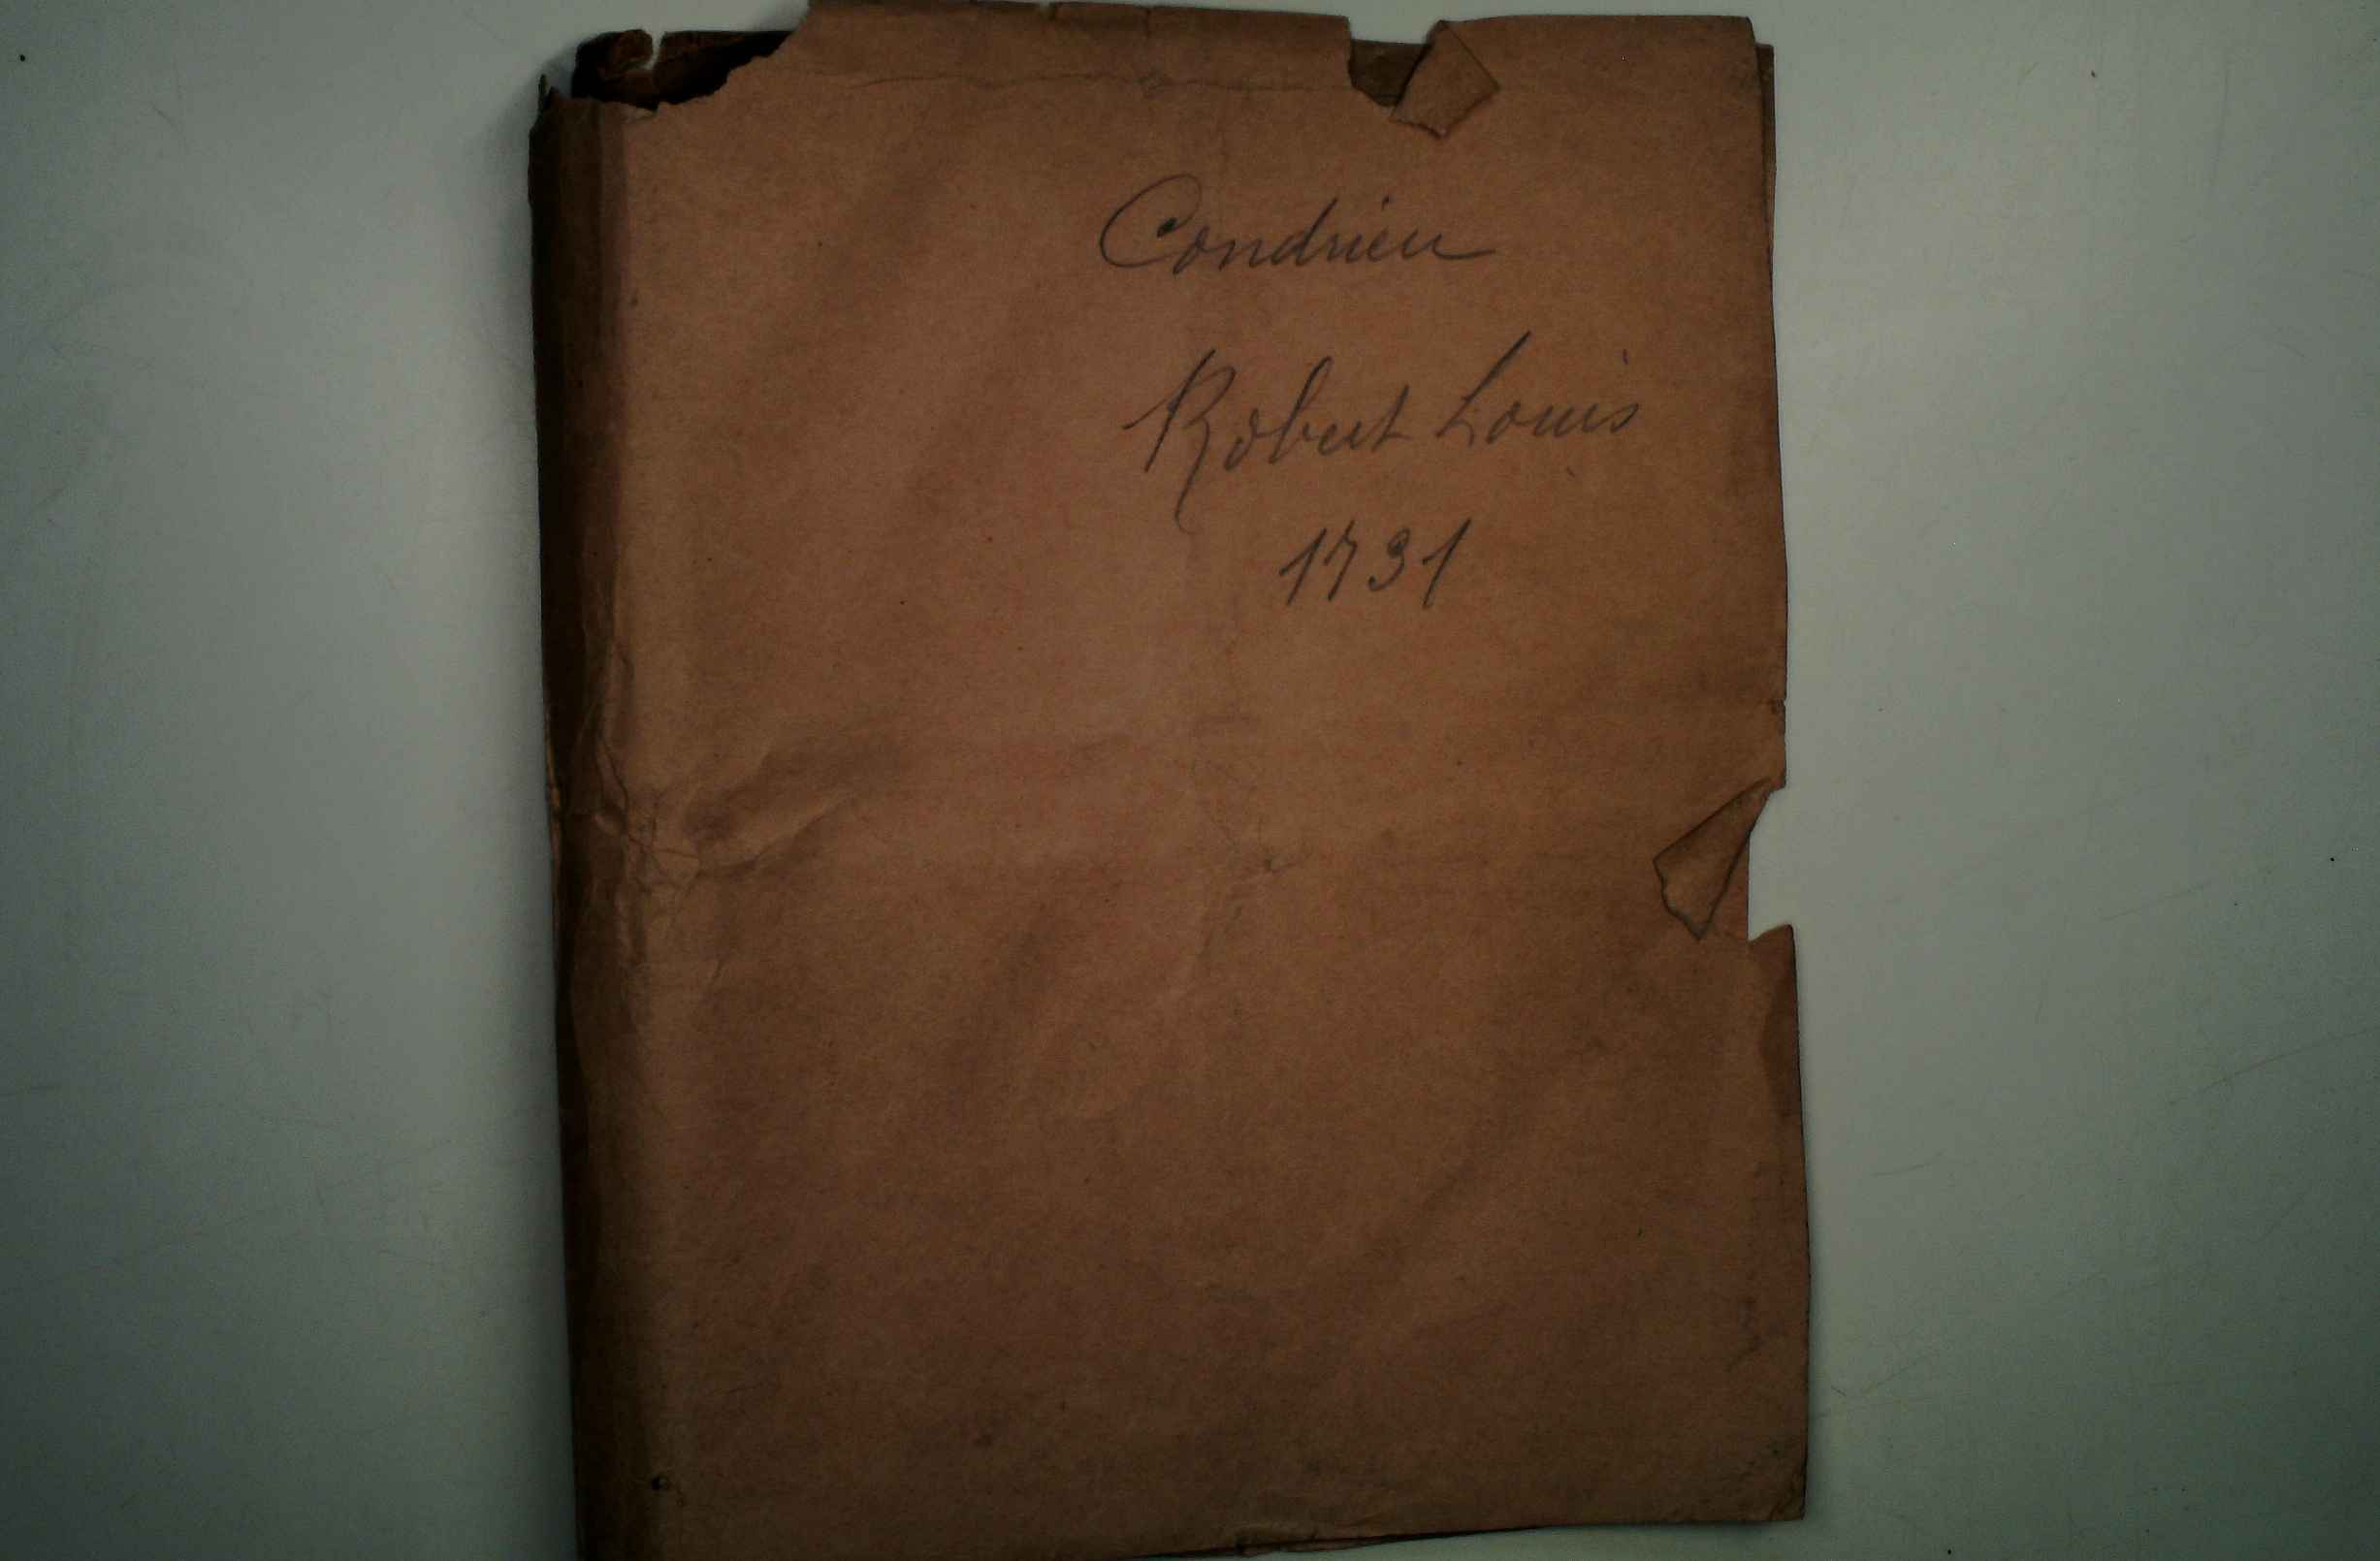 Condrieu
Robert Louis
1731